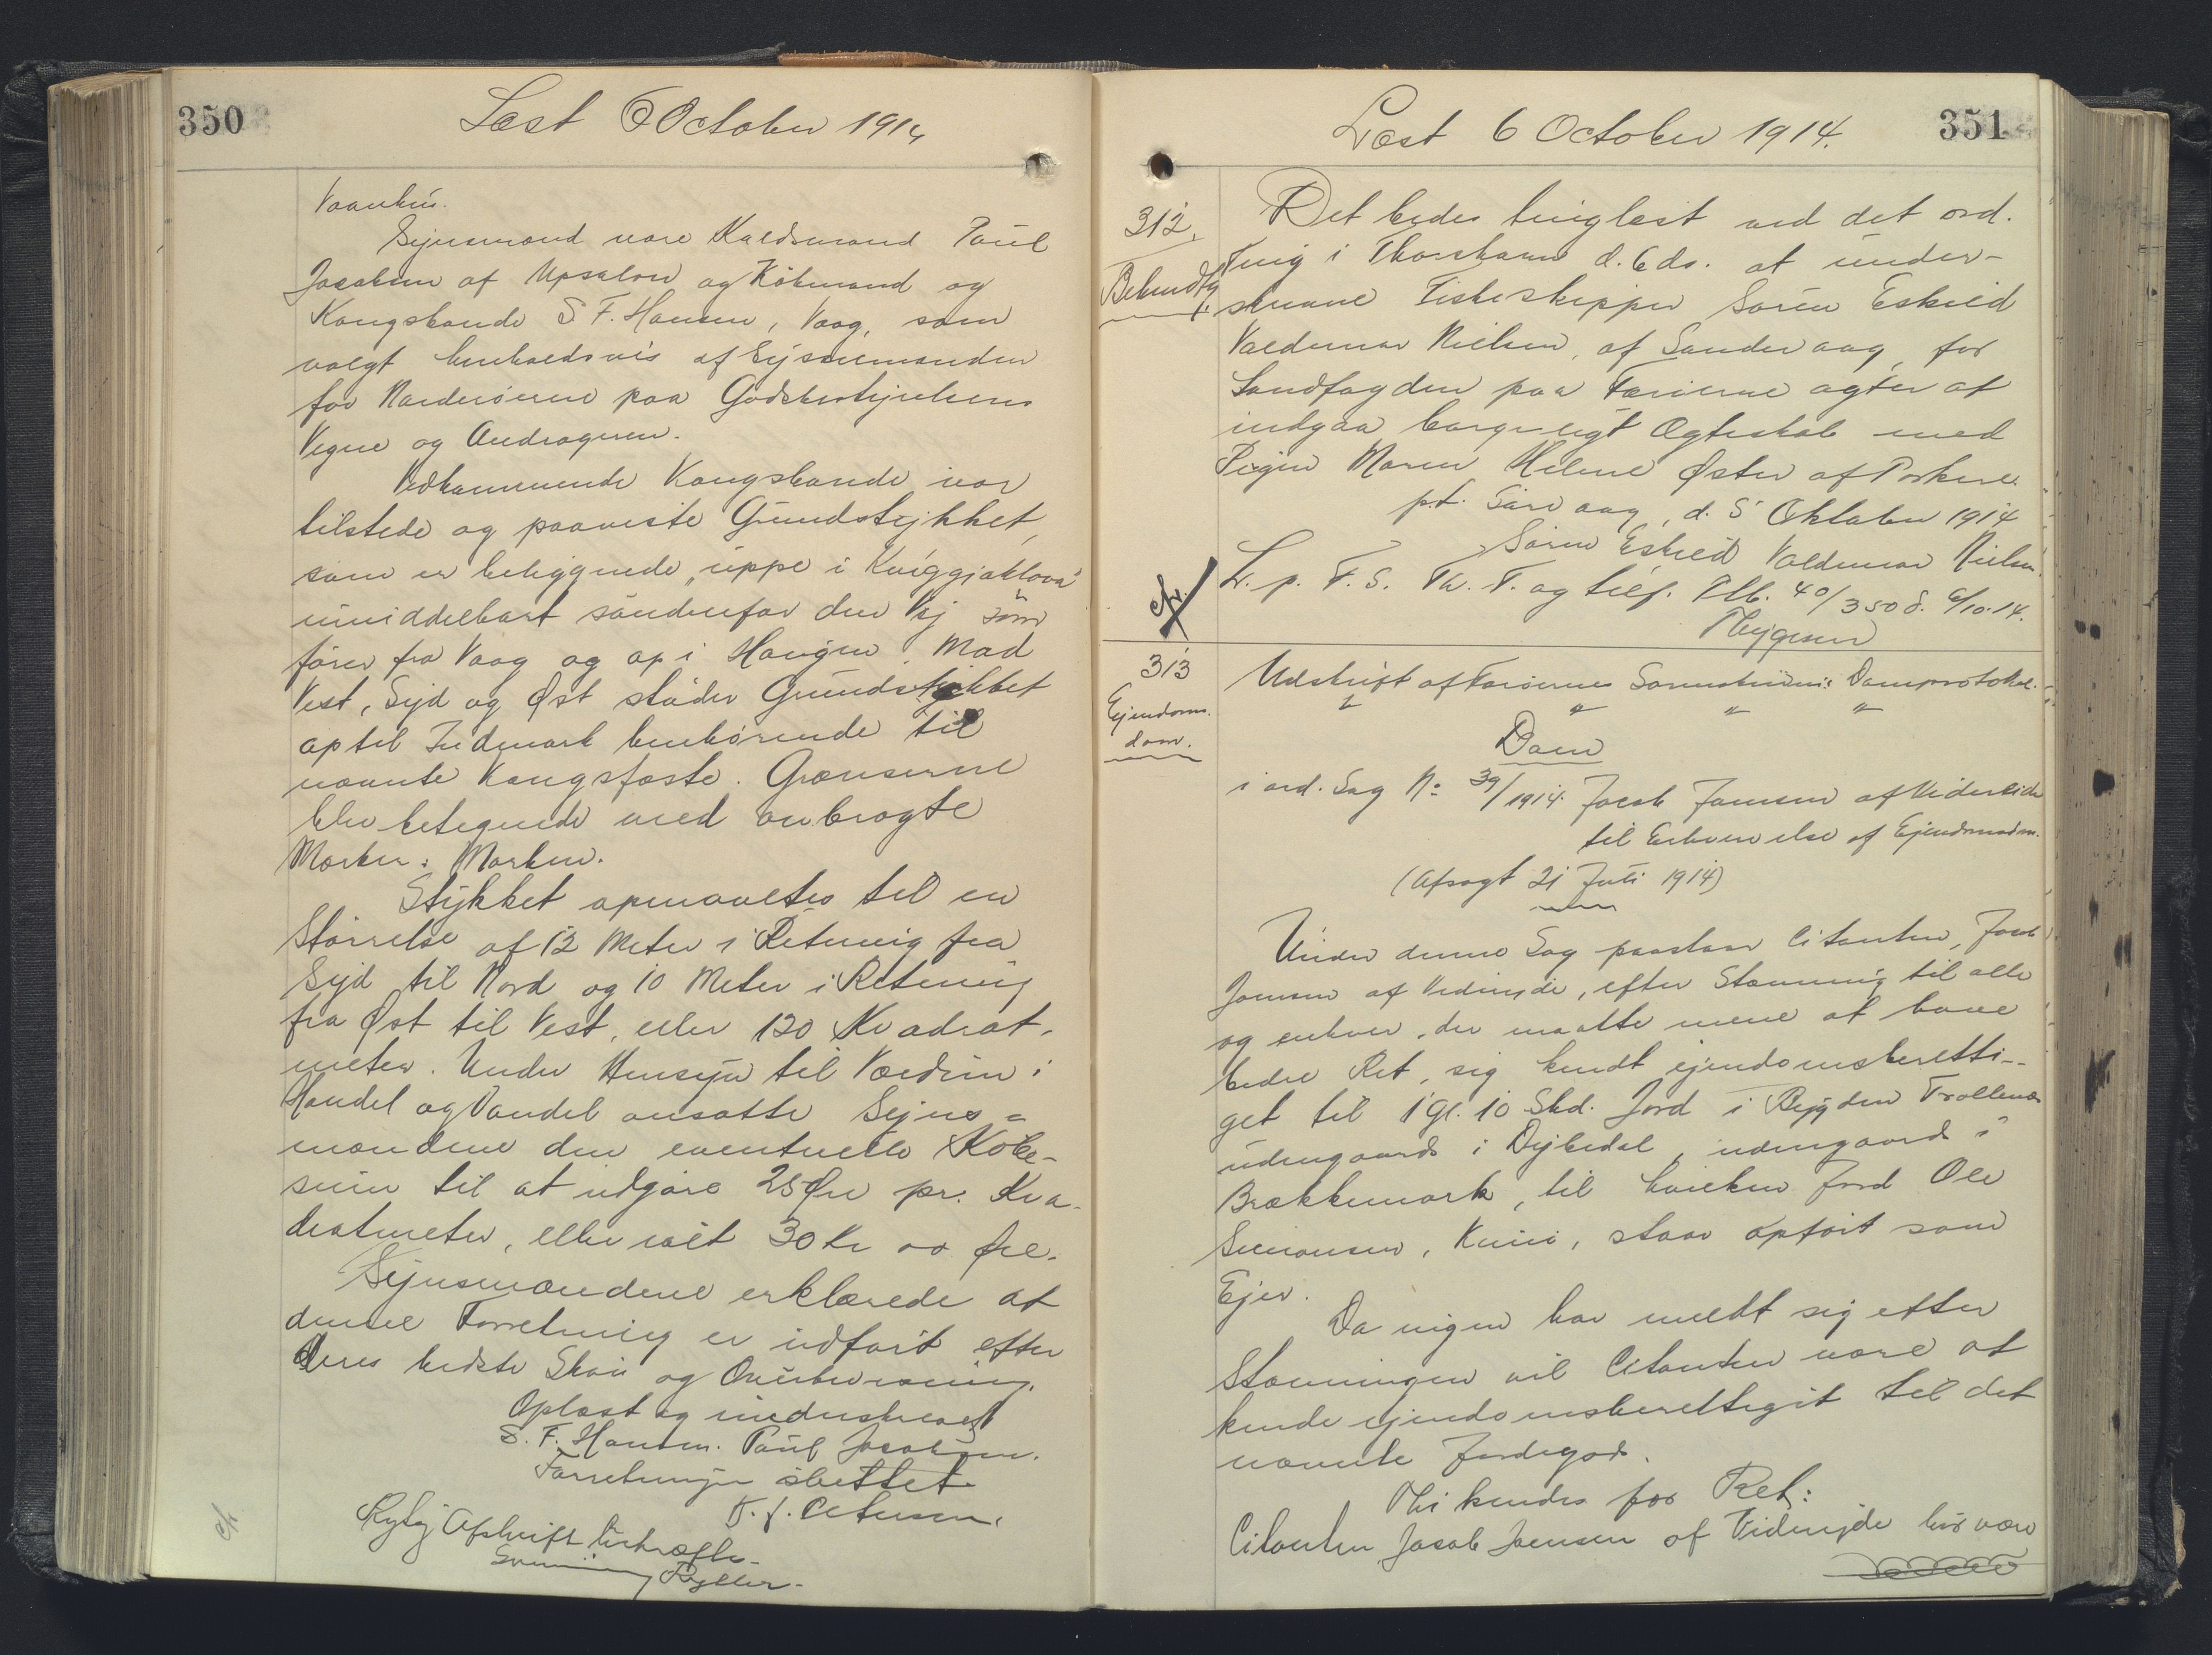 350
Læst 6 October 1914
Vaanhus.
Synsmænd vare Kaldsmand Poul
Jacobsen af Upsalon og Købmand og
Kongsbonde S. F. Hansen, Vaag, som
valgt henholdsvis af Sysselmanden
for Norderöerne paa Godsbestyrelsens
Vegne og Andrageren.
Vedkommende Kongsbonde var
tilstede og paaviste Grundstykket,
som er beliggende "uppe i
umiddelbart søndenfor den Vej som
fører fra Vaag og op i Haugen. Mod
Vest, Syd og Øst støder Grundstykket
op til Indmark henhørende til
nævnte Kongsfæste. Grænserne
blev betegnede med anbragte
Mærker: Mærker.
Stykket opmaaltes til en
Størrelse af 12 Meter i Retning fra
Syd til Nord og 10 Meter i Retning
fra Øst til Vest, eller 120 Kvadrat-
meter. Under Hensyn til Værdien i
Handel og Vandel ansatte Syns=
mændene den eventuelle Købe-
sum til at udgøre 25 Øre pr. Kva-
dratmeter, eller ialt 30 Kr 00 Øre.
Synsmændene erklærede at
denne Forretning er udført efter
deres bedste Skøn og Overbevisning.
Oplæst og underskrevet
S. F. Hansen. Poul Jacobsen.
Forretningen sluttet.
K. J. Petersen.
Rigtig Afskrift bekræftes

351
Læst 6 October 1914.
312.
Bekendtg.
Det bedes tinglæst ved det ord.
Ting i Thorshavn d. 6 ds. at under-
skrevne Fiskeskipper Sørén Eskild
Valdemar Nielsen, af Sandevaag, for
Landfogden paa Færøerne agter at
indgaa borgerligt Ægteskab med
Pigen Maren Helene Øster af Porkere.
p.t. Sørvaag, d. 5 Oktober 1914
Søren Eskild Valdemar Nielsen.
L. p. F. S. Th. T. og tilf. Plb. 40/350 d. 6/10.14.
Thygesen
313
Ejendoms.
dom.
Udskrift af Færøernes Sorenskriveris Domprotokol.
Dom
i ord. Sag No 39/1914. Jacob Joensen af Videreide
til Erhvervelse af Ejendomsdom.
(Afsagt 21 Juli 1914)
Under denne Sag paastaar Citanten, Jacob
Joensen af Viderejde, efter Stævning til alle
og enhver, der maatte mene at have
bedre Ret, sig kendt ejendomsberetti-
get til 1 Gl. 10 Skd. Jord i Bygden Trollenæs
udengaards i Dybedal, udengaards i
Brækkemark, til hvilken Jord Ole
Simonsen, Kunø, staar opført som
Ejer.
Da ingen har meldt sig efter
Stævningen vil Citanten være at
kende ejendomsberettiget til det
nævnte Jordegods.
Thi kendes for Ret:
Citanten, Jacob Joensen af Viderejde bør være